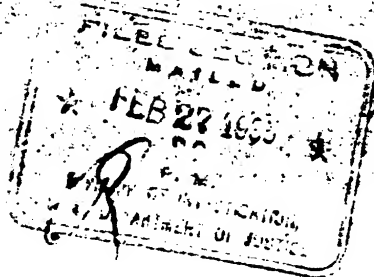 FILES SECTION
MAILED
FEB 27
P. M.
DIVISION OF INVESTIGATION,
U. S. DEPARTMENT OF JUSTICE